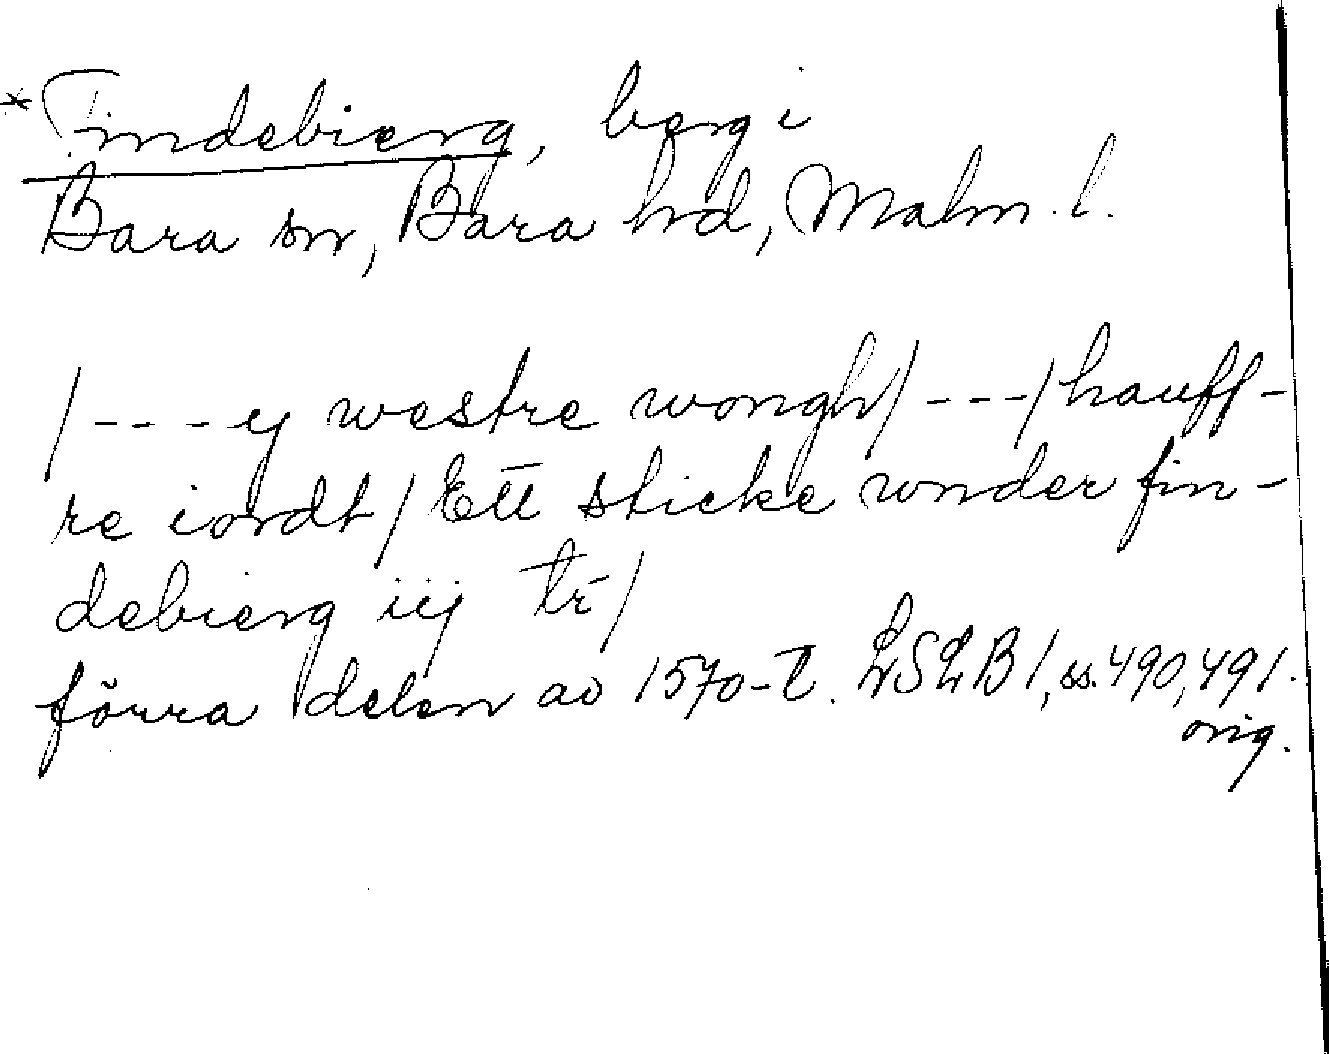 *Findebierg, berg i
Bara sn, Bara hd, Malm. l.
/---y westre wongh/---/hauff-
re iordt/Ett sticke wnder fin-
debierg iij tr̄/
förra delen av 1570-t. LSLB 1, ss. 490, 491.
orig.